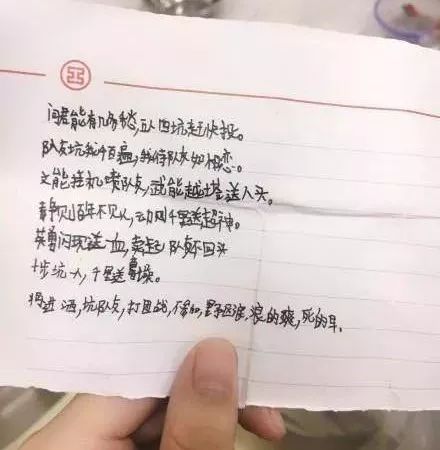 问君能有几多愁,五人四坑赶快投。
队友坑我千百遍,我待队友如初恋。
文能挂机喷队友,武能越塔送人头。
静则百年不见人,动则千里送超神。
英勇闪现送一血,卖起队友不回头
十步坑一人,千里送貂蝉。
将进酒,坑队友,打团战,不参加,野区浪,浪的爽,死的早.